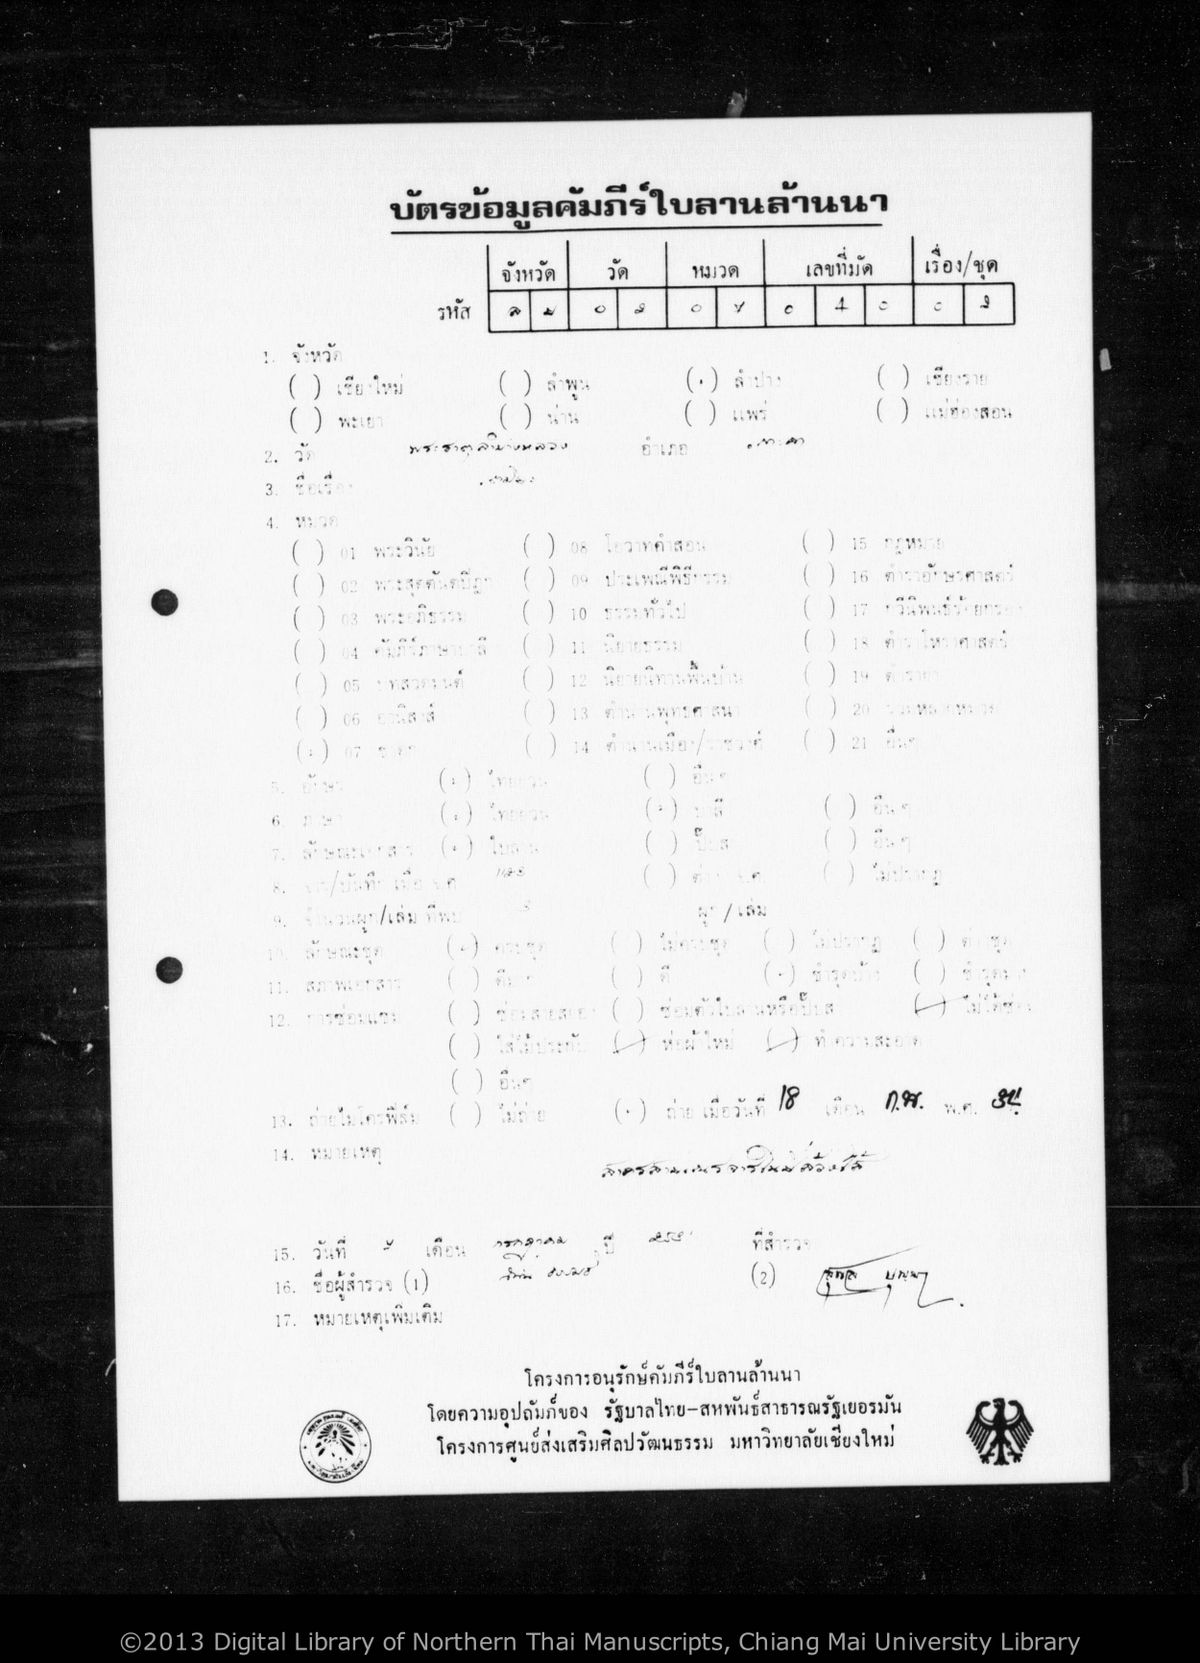 บัตรข้อมูลคัมภีร์ใบลานล้านนา
จังหวัด วัด หมวด เลขที่มัด เรื่อง/ชุด
รหัส
1. จังหวัด
( ) เชียงใหม่ ( ) ลำพูน (.) ลำปาง ( ) เชียงราย
( ) พะเยา ( ) น่าน ( ) แพร่ ( ) แม่ฮ่องสอน
2. วัด พระธาตุลำปางหลวง อำเภอ เกาะคา
3. ชื่อเรื่อง
4. หมวด
( ) 01 พระวินัย ( ) 08 โอวาทคำสอน ( ) 15 กฎหมาย
( ) 02 พระสุตตันตปิฎก ( ) 09 ประเพณีพิธีกรรม ( ) 16 ตำราอักษรศาสตร์
( ) 03 พระอภิธรรม ( ) 10 ธรรมทั่วไป ( ) 17 กวีนิพนธ์ร้อยกรอง
( ) 04 คัมภีร์ภาษาบาลี ( ) 11 นิยายธรรม ( ) 18 ตำราโหราศาสตร์
( ) 05 บทสวดมนต์ ( ) 12 นิยายนิทานพื้นบ้าน ( ) 19 ตำรายา
( ) 06 อานิสงส์ ( ) 13 ตำนานพุทธศาสนา ( ) 20 รวมหลายหมวด
(.) 07 ชาดก ( ) 14 ตำนานเมือง/ราชวงศ์ ( ) 21 อื่นๆ
5. อักษร (.) ไทยยวน ( ) อื่นๆ
6. ภาษา (.) ไทยยวน (.) บาลี ( ) อื่นๆ
7. ลักษณะเอกสาร (.) ใบลาน ( ) ปั๊บสา ( ) อื่นๆ
8. จาร/บันทึก เมื่อ จ.ศ. ( ) ( ) ไม่ปรากฏ
9. จำนวนผูก/เล่ม ที่พบ ผูก / เล่ม
10. ลักษณะชุด (.) ครบชุด ( ) ไม่ครบชุด ( ) ไม่ปรากฏ ( )
11. สภาพเอกสาร ( ) ดีมาก ( ) ดี (.) ชำรุดบ้าง ( ) ชำรุดมาก
12. การซ่อมแซม ( ) ซ่อมสายสยอง ( ) ซ่อมตัวใบลานหรือปั๊บสา ( ) ไม่ได้ซ่อม
( ) ใส่ไม้ประกับ ( ) ห่อผ้าใหม่ ( ) ทำความสะอาด
( ) อื่นๆ
13. ถ่ายไมโครฟิล์ม ( ) ไม่ถ่าย (.) ถ่าย เมื่อวันที่ 18 เดือน ก.พ. พ.ศ.
14. หมายเหตุ
15. วันที่ เดือน กรกฎาคม ปี ที่สำรวจ
16. ชื่อผู้สำรวจ (1) (2)
17. หมายเหตุเพิ่มเติม
โครงการอนุรักษ์คัมภีร์ใบลานล้านนา
โดยความอุปถัมภ์ของ รัฐบาลไทย-สหพันธ์สาธารณรัฐเยอรมัน
โครงการศูนย์ส่งเสริมศิลปวัฒนธรรม มหาวิทยาลัยเชียงใหม่
©2013 Digital Library of Northern Thai Manuscripts, Chiang Mai University Library